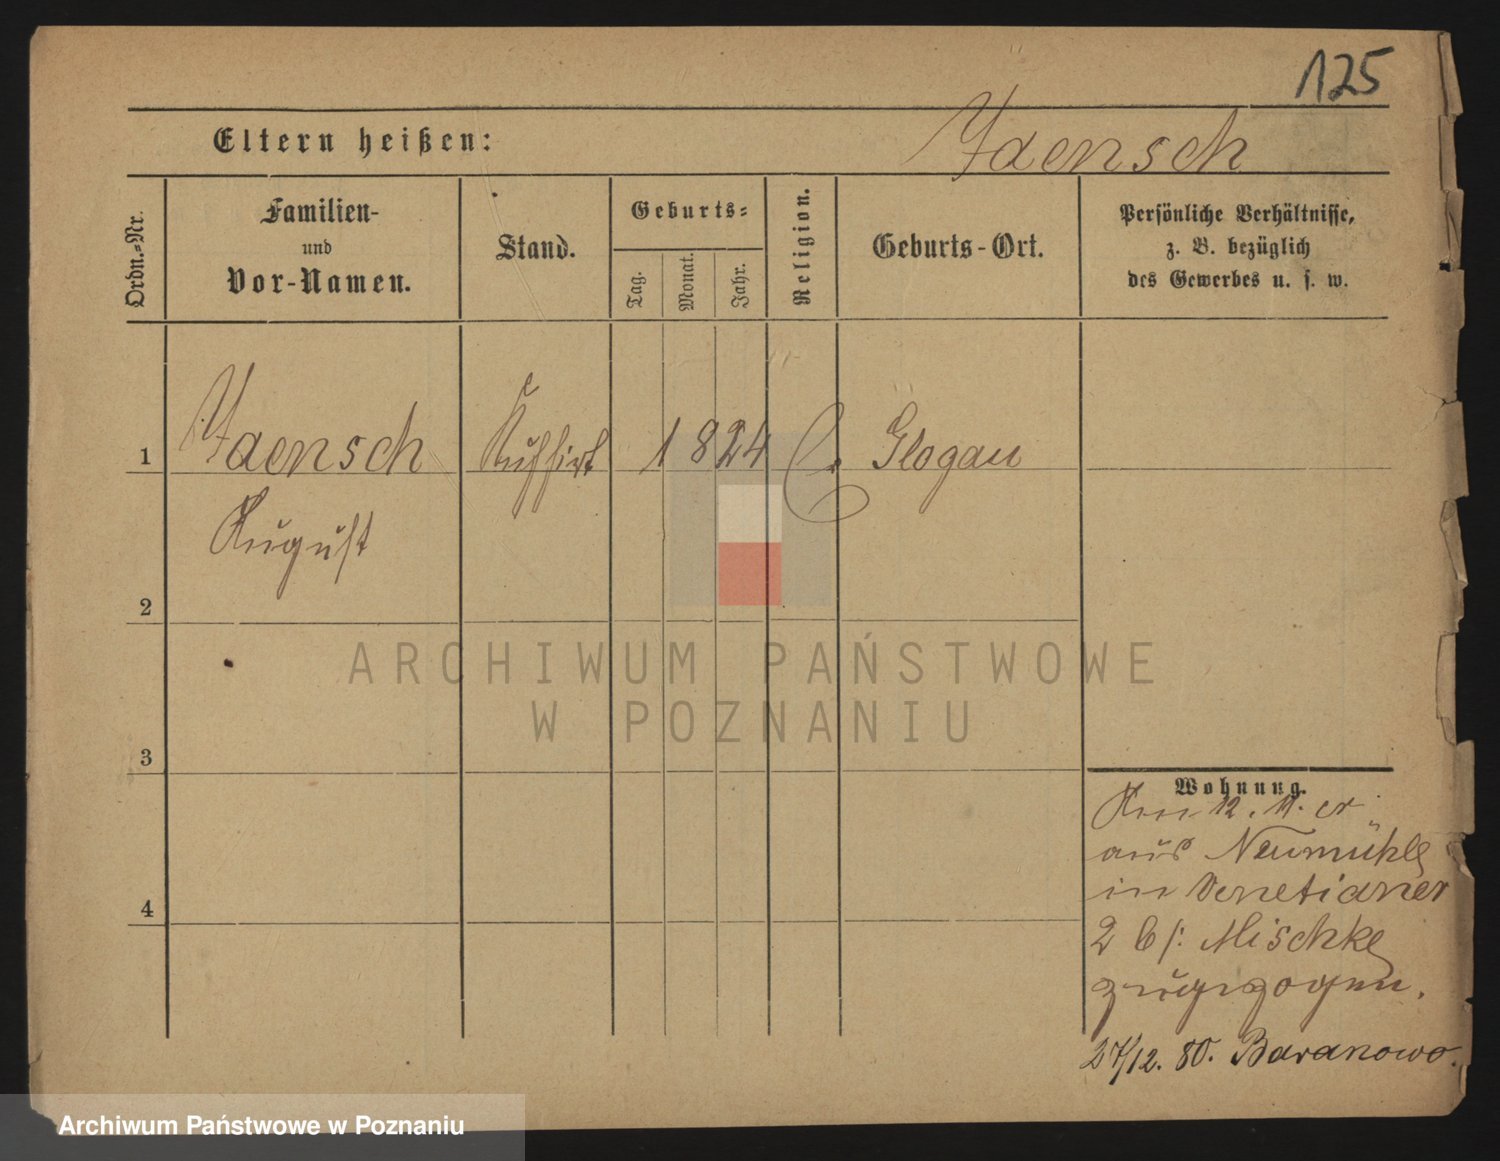 125
Eltern heißen: Jaensch
Ordn.-Nr.
Familien-
und
Vor-Namen.
Stand.
Geburts-
Tag.
Monat.
Jahr.
Religion.
Geburts-Ort.
Persönliche Verhältnisse,
z. B. bezüglich
des Gewerbes u. s. w.
1 Jaensch Kuhhirt 1824 Glogau
August
2
3
4
Wohnung.
Am 12. 11. cr
aus Neumühle
in Venetianer
2 b/: Mischke
zugezogen.
27/12. 80. Baranowo.
ARCHIWUM PAŃSTWOWE
W POZNANIU
Archiwum Państwowe w Poznaniu